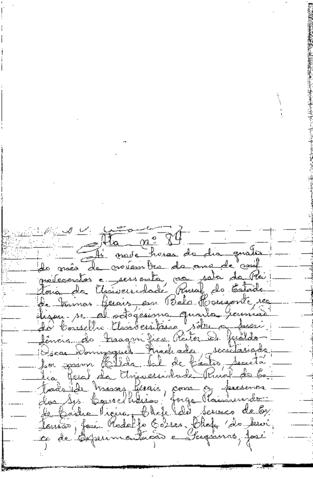 Ata nº 84
Às nove horas do dia quatro
do mês de novembro do ano de mil
novecentos e sessenta, na sala da Rei-
toria da Universidade Rural do Estado
de Minas Gerais, em Belo Horizonte, rea-
lizou-se a octogésima quarta reunião
do Conselho Universitário, sob a presi-
dência do Magnífico Reitor
Oscar Domingues Machado, secretariada
por mim, secretá-
ria Geral da Universidade Rural do Es-
tado de Minas Gerais, com a presença
dos Srs Conselheiros: Jorge Raimundo
de Castro Vieira, Chefe do Serviço de Ex-
tensão, José Rodolfo Torres, Chefe do Servi-
ço de Experimentação e Pesquisa, José